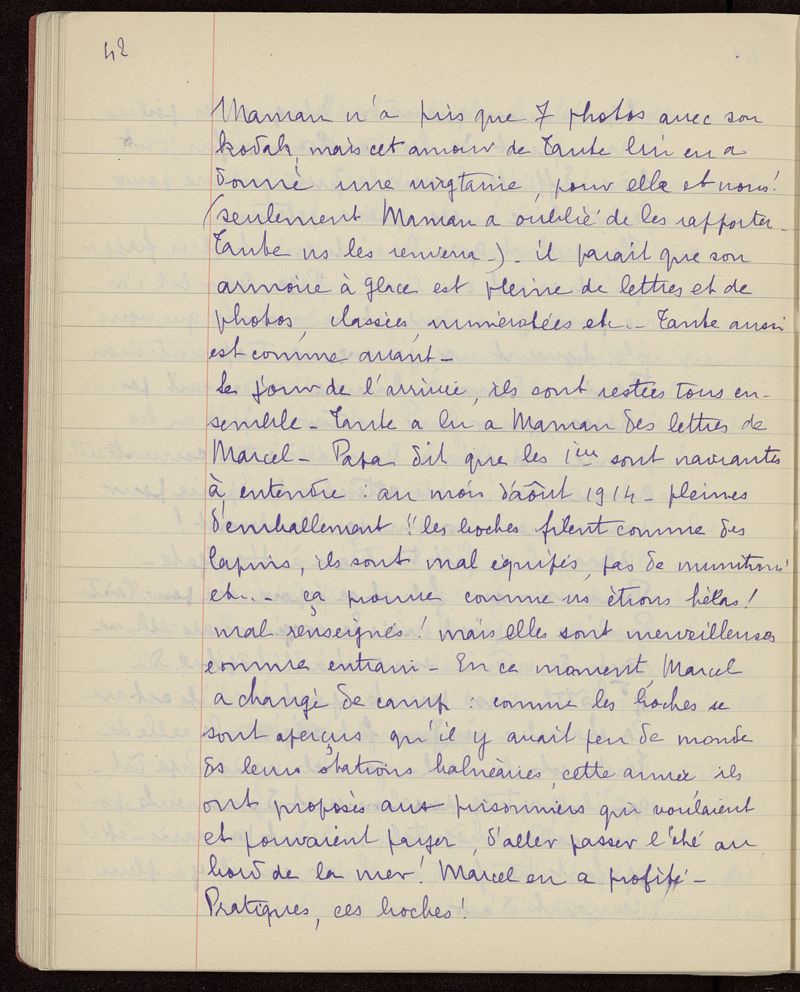 42
Maman n'a pris que 7 photos avec son
kodak, mais cet amour de Tante lui en a
donné une vingtaine, pour elle et nous!
(seulement Maman a oublié de les rapporter -
Tante ns les renverra -). il parait que son
armoire à glace est pleine de lettres et de
photos, classées, numérotées etc.. - Tante aussi
est comme avant -
Le jour de l'arrivée, ils sont restés tous en-
semble - Tante a lu a Maman des lettres de
Marcel - Papa dit que les 1ères sont navrantes
à entendre : au mois d'août 1914 - pleines
d'emballement "les boches filent comme des
lapins, ils sont mal équipés, pas de munitions"
etc... - ça prouve comme ns étions hélas!
mal renseignés! mais elles sont merveilleuses
comme entrain - En ce moment, Marcel
a changé de camp : comme les boches se
sont aperçus qu'il y avait peu de monde
ds leurs stations balnéaires, cette année ils
ont proposés aux prisonniers qui voulaient
et pouvaient payer, d'aller passer l'été au
bord de la mer! Marcel en a profité -
Pratiques, ces boches!